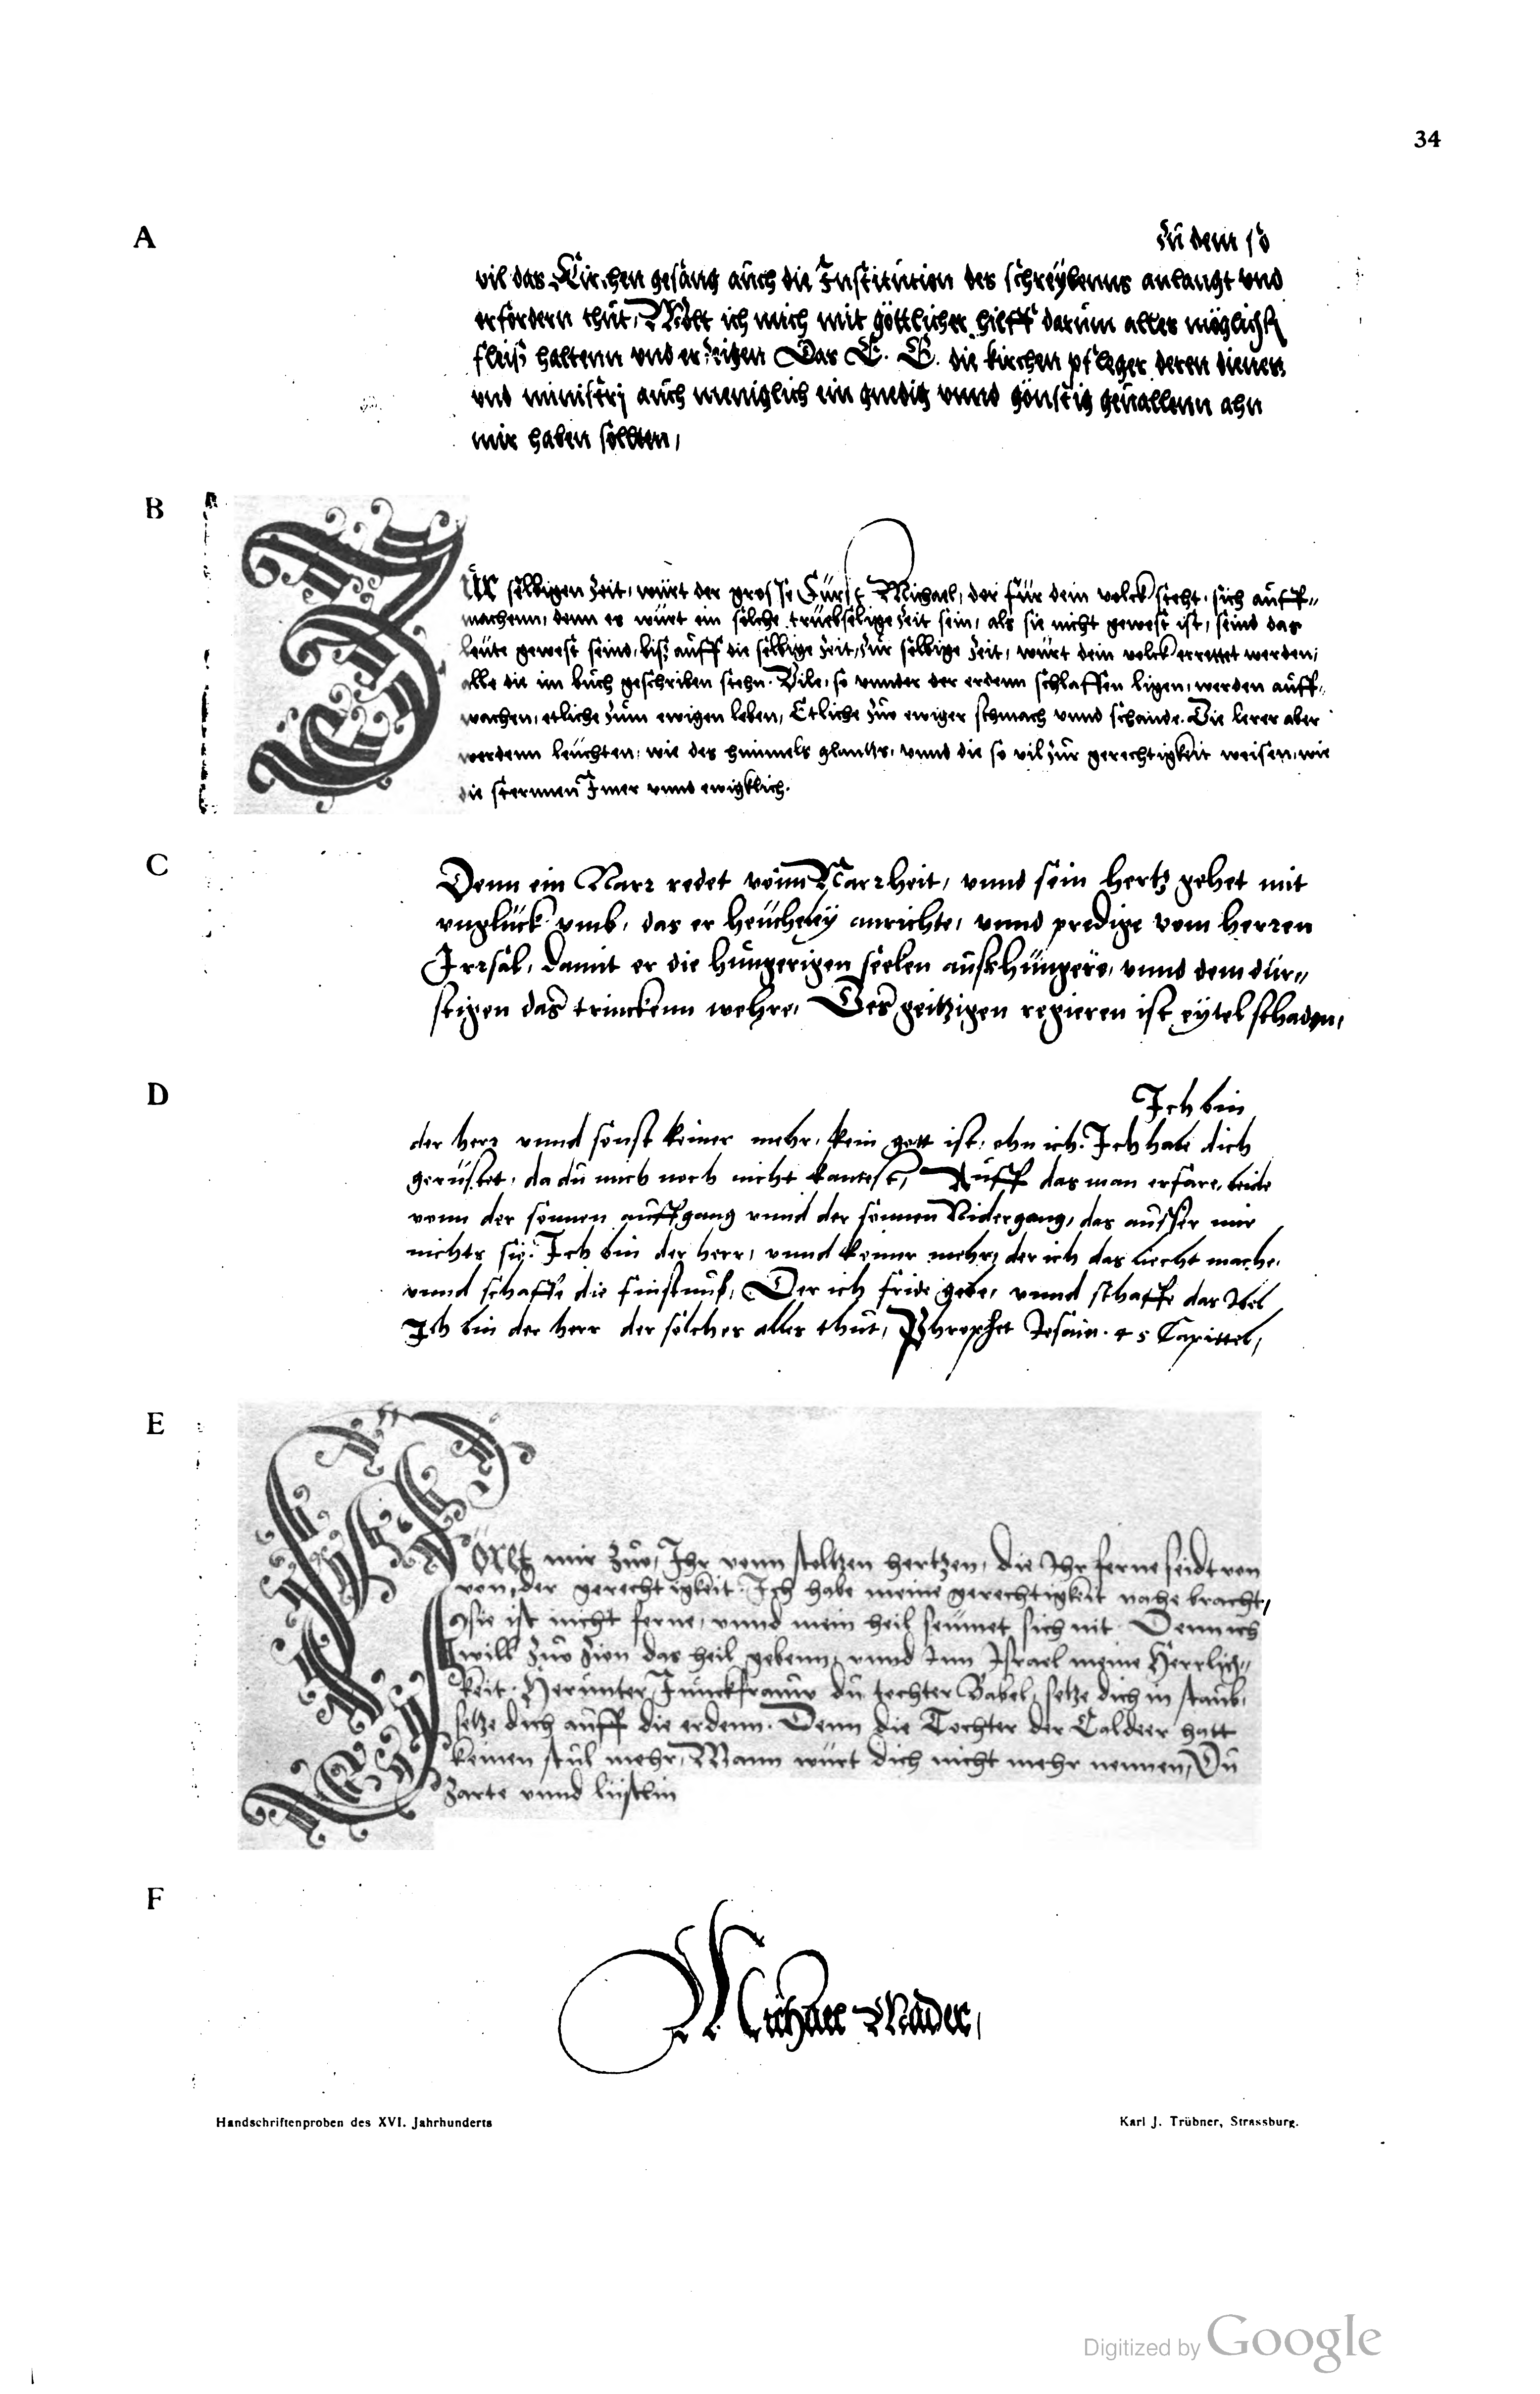 34
A
Zu dem so
vil das Kirchen gesäng auch die Institution des schreybenns anlangt vnd
erfordern thut, Wolt ich mich mit göttlicher hilff darum alles möglichst
fleiß haltenn vnd erzeigen Das E. G. die kirchen pfleger deren diener
vnd ministrj auch meniglich ein gnedig vnnd gönstig geuallenn ahn
mir haben sollten,
B
ZUR selbigen zeit, würt der grosse Fürst Michael, der für dein volck steht, sich auff-
machenn, denn es würt ein solche truebselige zeit sein, als sie nicht gewest ist, seind das
leüte gewest seind, biß auff die selbige zeit, zur selbige zeit, würt dein volck errettet werden,
alle die im buch geschriben stehn. Vile, so vnnder der erdenn schlaffen ligen, werden auff-
wachen, etliche zum ewigen leben, Etliche zuo ewiger schmach vnnd schande. Die lerer aber
werdenn leüchten, wie des himmels glantz, vnnd die so vil zur gerechtigkeit weisen, wie
die sternnen Imer vnnd ewigklich.
C
Denn ein Narr redet vonn Narrheit, vnnd sein hertz gehet mit
vnglück vmb, das er heücheley anrichte, vnnd predige vom herren
Irrsal, damit er die hungerigen seelen außhüngere, vnnd dem dur-
stigen das trinckenn wehre, Des geitzigen regieren ist eytel schaden,
D
Ich bin
der herr vnnd sonst keiner mehr, kein gott ist, ohn ich. Ich habe dich
gerüstet, da du mich noch nicht kantest, Auff das man erfare, beide
vonn der sonnen auffgang vnnd der sonnen Nidergang, das ausser mir
nichts sÿ. Ich bin der herr, vnnd keiner mehr, der ich das liecht mache,
vnnd schaffe die finstnuß, Der ich fride gebe, vnnd schaffe das Ibel
Ich bin der herr der solches alles thut, Phrophet Jesaia. 45 Capittel,
E
Höret mir zuo, Ihr vonn stoltzen hertzen, die Ihr ferne seidt von
von, der gerechtigkeit. Ich habe meine gerechtigkeit nahe bracht,
sie ist nicht ferne, vnnd mein heil seümet sich nit. Denn ich
will zuo Zion das heil gebenn, vnnd Inn Israel meine Herrlich-
keit. Herunter Junckfrauw du tochter Babel, setze dich in staub,
setze dich auff die erdenn. Denn die Tochter der Caldeer hatt
keinen stul mehr, Mann würt dich nicht mehr nennen, Du
zarte vnnd lüstlin
F
Michael Mader,
Handschriftenproben des XVI. Jahrhunderts
Karl J. Trübner, Strassburg.
Digitized by Google